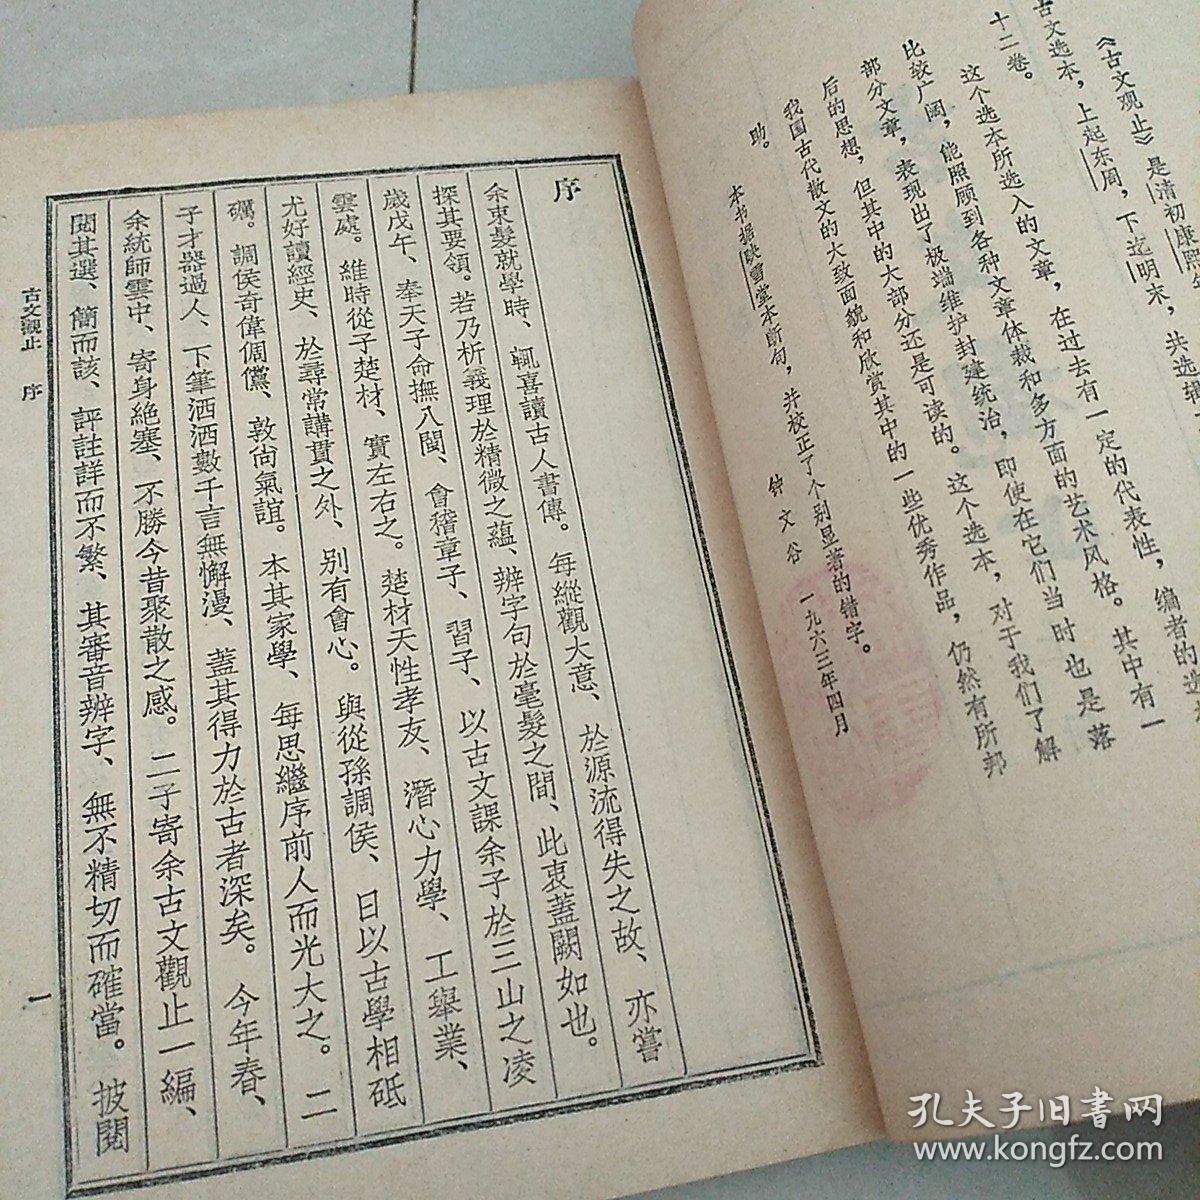 《古文观止》是清初康熙年
古文选本，上起东周，下迄明末，共选辑
十二卷。
这个选本所选入的文章，在过去有一定的代表性，编者的选
比较广阔，能照顾到各种文章体裁和多方面的艺术风格。其中有一
部分文章，表现出了极端维护封建统治，即使在它们当时也是落
后的思想，但其中的大部分还是可读的。这个选本，对于我们了解
我国古代散文的大致面貌和欣赏其中的一些优秀作品，仍然有所帮
助。
本书据映雪堂本断句，并校正了个别显著的错字。
钟文谷 一九六三年四月
序
余束髮就學時、輒喜讀古人書傳。每縱觀大意、於源流得失之故、亦嘗
探其要領。若乃析義理於精微之蘊、辨字句於毫髮之間、此衷蓋闕如也。
歲戊午、奉天子命撫八閩、會稽章子、習子、以古文課余子於三山之凌
雲處。維時從子楚材、實左右之。楚材天性孝友、潛心力學、工舉業、
尤好讀經史、於尋常講貫之外、别有會心。與從孫調侯、日以古學相砥
礪。調侯奇偉倜儻、敦尙氣誼。本其家學、每思繼序前人而光大之。二
子才器過人、下筆洒洒數千言無懈漫、蓋其得力於古者深矣。今年春、
余統師雲中、寄身絶塞、不勝今昔聚散之感。二子寄余古文觀止一編、
閱其選、簡而該、評註詳而不繁、其審音辨字、無不精切而確當。披閱
古文觀止 序
一
孔夫子旧书网
www.kongfz.com